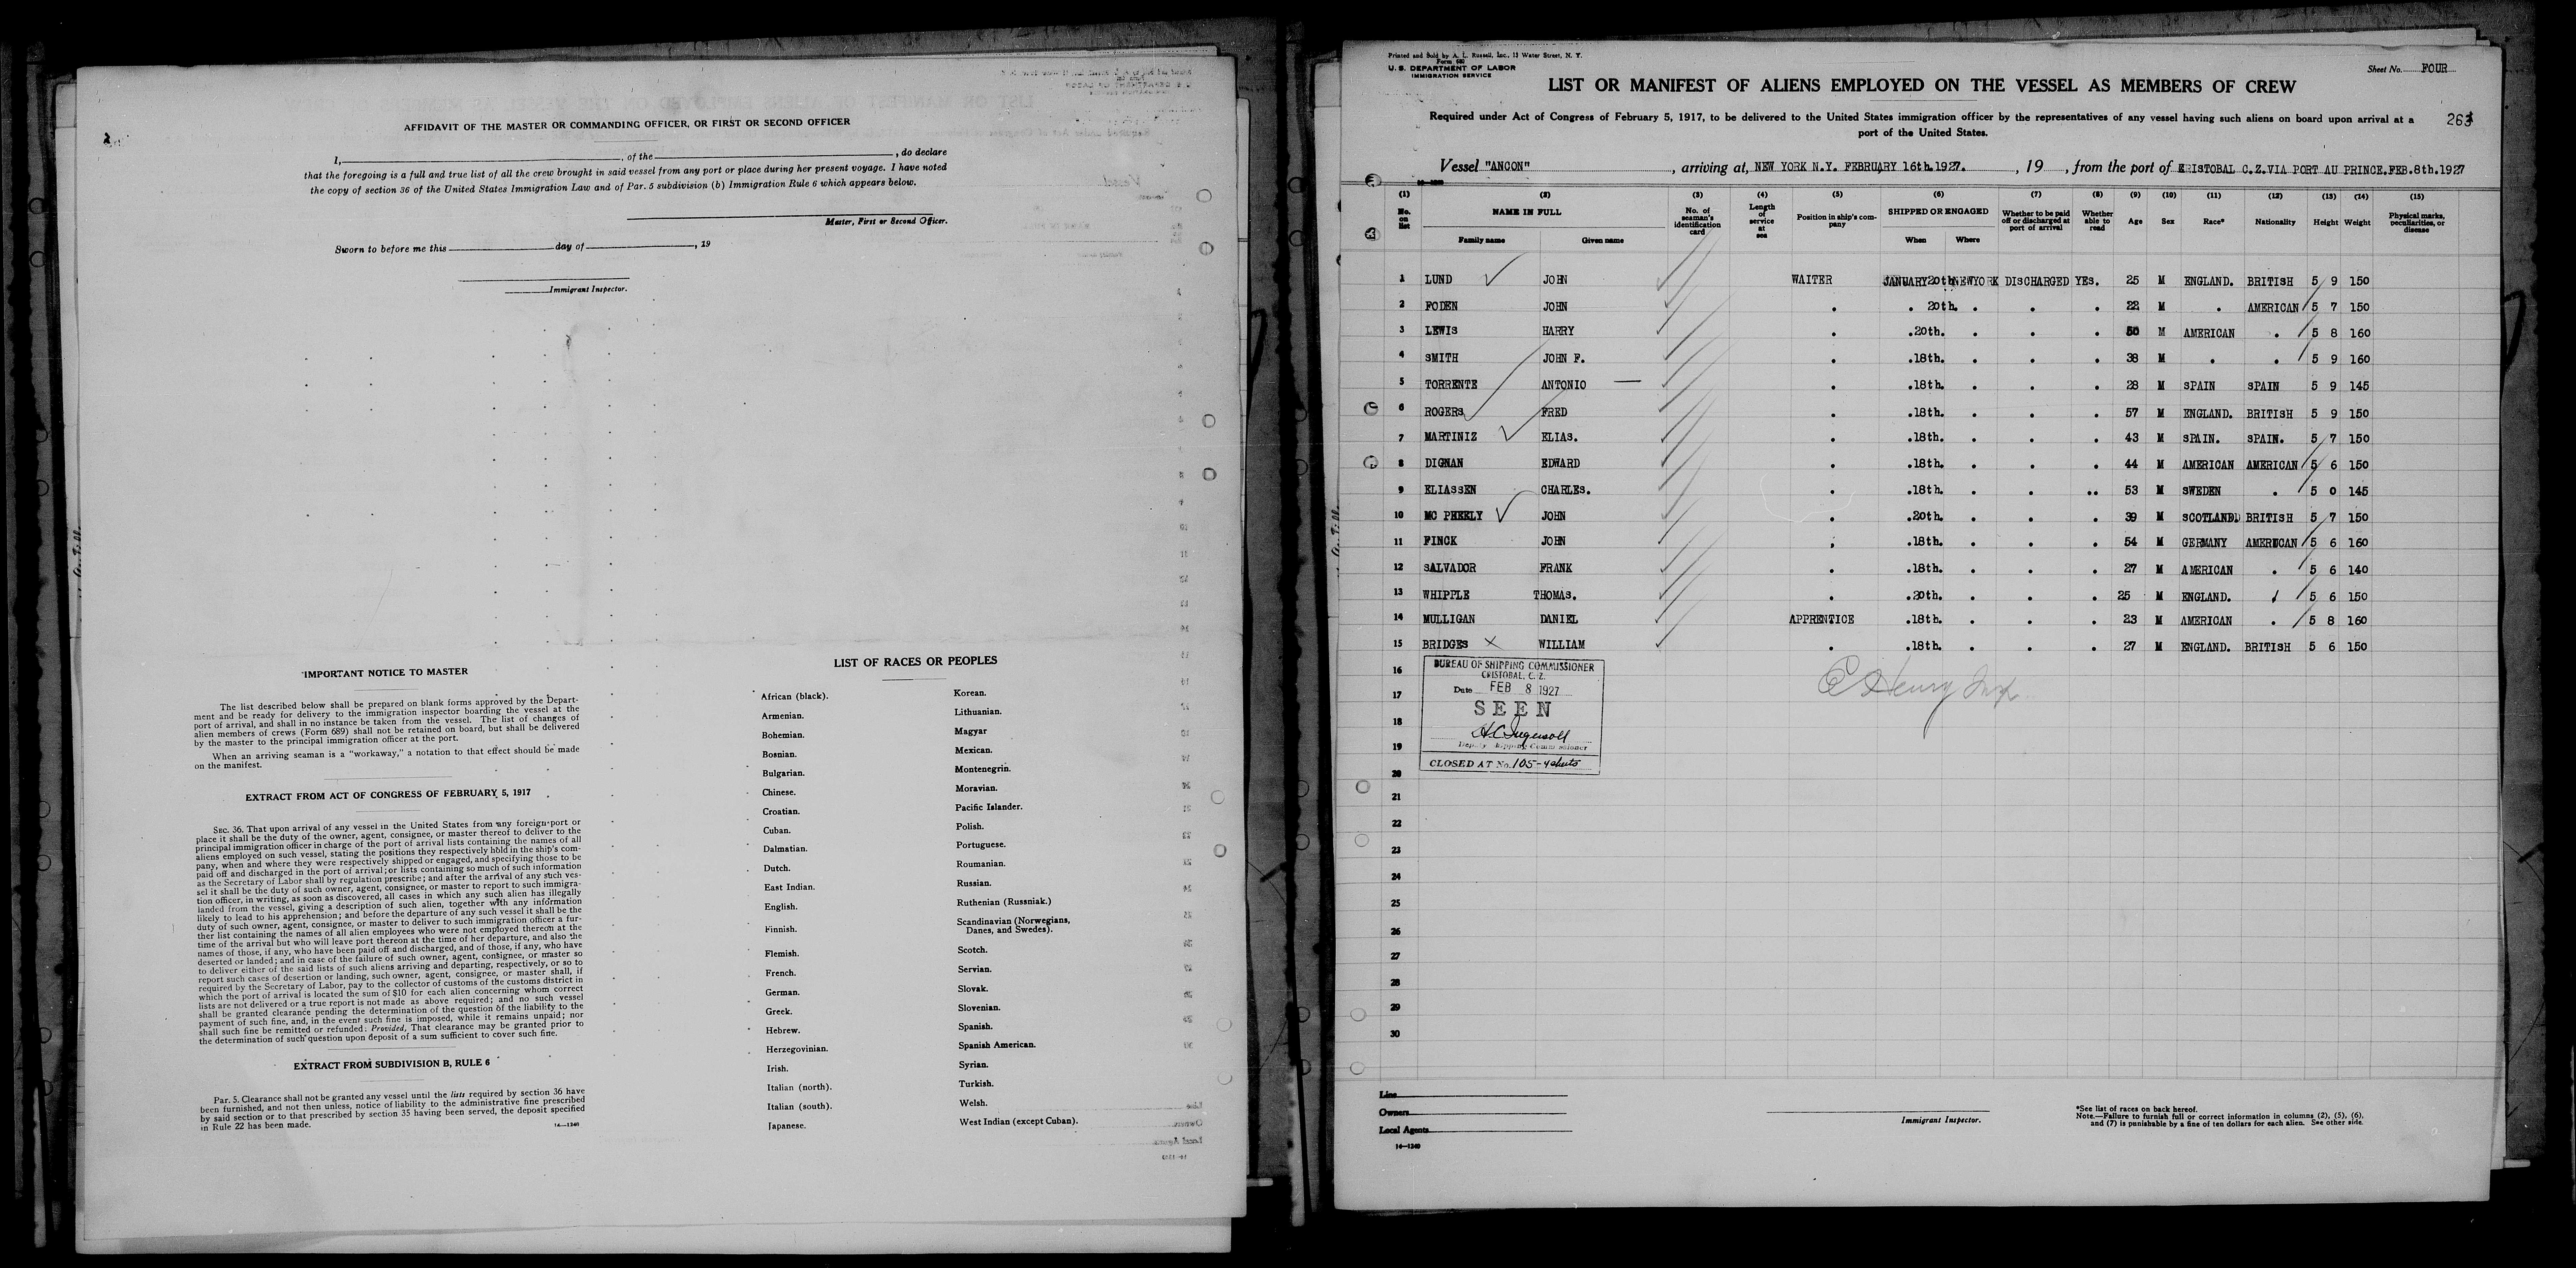 AFFIDAVIT OF THE MASTER OR COMMANDING OFFICER, OR FIRST OR SECOND OFFICER
I, , of the , do declare
that the foregoing is a full and true list of all the crew brought in said vessel from any port or place during her present voyage. I have noted
the copy of section 36 of the United States Immigration Law and of Par. 5 subdivision (b) Immigration Rule 6 which appears below.
Master, First or Second Officer.
Sworn to before me this day of , 19
Immigrant Inspector.
IMPORTANT NOTICE TO MASTER
The list described below shall be prepared on blank forms approved by the Depart-
ment and be ready for delivery to the immigration inspector boarding the vessel at the
port of arrival, and shall in no instance be taken from the vessel. The list of changes of
alien members of crews (Form 689) shall not be retained on board, but shall be delivered
by the master to the principal immigration officer at the port.
When an arriving seaman is a "workaway," a notation to that effect should be made
on the manifest.
EXTRACT FROM ACT OF CONGRESS OF FEBRUARY 5, 1917
SEC. 36. That upon arrival of any vessel in the United States from any foreign port or
place it shall be the duty of the owner, agent, consignee, or master thereof to deliver to the
principal immigration officer in charge of the port of arrival lists containing the names of all
aliens employed on such vessel, stating the positions they respectively hold in the ship's com-
pany, when and where they were respectively shipped or engaged, and specifying those to be
paid off and discharged in the port of arrival; or lists containing so much of such information
as the Secretary of Labor shall by regulation prescribe; and after the arrival of any such ves-
sel it shall be the duty of such owner, agent, consignee, or master to report to such immigra-
tion officer, in writing, as soon as discovered, all cases in which any such alien has illegally
landed from the vessel, giving a description of such alien, together with any information
likely to lead to his apprehension; and before the departure of any such vessel it shall be the
duty of such owner, agent, consignee, or master to deliver to such immigration officer a fur-
ther list containing the names of all alien employees who were not employed thereon at the
time of the arrival but who will leave port thereon at the time of her departure, and also the
names of those, if any, who have been paid off and discharged, and of those, if any, who have
deserted or landed; and in case of the failure of such owner, agent, consignee, or master so
to deliver either of the said lists of such aliens arriving and departing, respectively, or so to
report such cases of desertion or landing, such owner, agent, consignee, or master shall, if
required by the Secretary of Labor, pay to the collector of customs of the customs district in
which the port of arrival is located the sum of $10 for each alien concerning whom correct
lists are not delivered or a true report is not made as above required; and no such vessel
shall be granted clearance pending the determination of the question of the liability to the
payment of such fine, and, in the event such fine is imposed, while it remains unpaid; nor
shall such fine be remitted or refunded: Provided, That clearance may be granted prior to
the determination of such question upon deposit of a sum sufficient to cover such fine.
EXTRACT FROM SUBDIVISION B, RULE 6
Par. 5. Clearance shall not be granted any vessel until the lists required by section 36 have
been furnished, and not then unless, notice of liability to the administrative fine prescribed
by said section or to that prescribed by section 35 having been served, the deposit specified
in Rule 22 has been made.
14—1240
LIST OF RACES OR PEOPLES
African (black). Korean.
Armenian. Lithuanian.
Bohemian. Magyar
Bosnian. Mexican.
Bulgarian. Montenegrin.
Chinese. Moravian.
Croatian. Pacific Islander.
Cuban. Polish.
Dalmatian. Portuguese.
Dutch. Roumanian.
East Indian. Russian.
English. Ruthenian (Russniak.)
Finnish. Scandinavian (Norwegians,
Danes, and Swedes).
Flemish. Scotch.
French. Servian.
German. Slovak.
Greek. Slovenian.
Hebrew. Spanish.
Herzegovinian. Spanish American.
Irish. Syrian.
Italian (north). Turkish.
Italian (south). Welsh.
Japanese. West Indian (except Cuban).
Printed and Sold by A. L. Russell, Inc., 13 Water Street, N. Y.
Form 680
U. S. DEPARTMENT OF LABOR
IMMIGRATION SERVICE
Sheet No. FOUR
LIST OR MANIFEST OF ALIENS EMPLOYED ON THE VESSEL AS MEMBERS OF CREW
Required under Act of Congress of February 5, 1917, to be delivered to the United States immigration officer by the representatives of any vessel having such aliens on board upon arrival at a
port of the United States.
263
Vessel "ANCON" , arriving at, NEW YORK N.Y. FEBRUARY 16th.1927. , 19 , from the port of CRISTOBAL C.Z.VIA PORT AU PRINCE.FEB.8th.1927
(1) (2) (3) (4) (5) (6) (7) (8) (9) (10) (11) (12) (13) (14) (15)
No. on list NAME IN FULL No. of seaman's identification card Length of service at sea Position in ship's company SHIPPED OR ENGAGED Whether to be paid off or discharged at port of arrival Whether able to read Age Sex Race* Nationality Height Weight Physical marks, peculiarities, or disease
Family name Given name When Where
1 LUND JOHN WAITER JANUARY20th NEWYORK DISCHARGED YES. 25 M ENGLAND. BRITISH 5 9 150
2 FODEN JOHN . . 20th. . . . 22 M . AMERICAN 5 7 150
3 LEWIS HARRY . .20th. . . . 50 M AMERICAN . 5 8 160
4 SMITH JOHN F. . .18th. . . . 38 M . . 5 9 160
5 TORRENTE ANTONIO — . .18th. . . . 28 M SPAIN SPAIN 5 9 145
6 ROGERS FRED . .18th. . . . 57 M ENGLAND. BRITISH 5 9 150
7 MARTINIZ ELIAS. . .18th. . . . 43 M SPAIN. SPAIN. 5 7 150
8 DIGNAN EDWARD . .18th. . . . 44 M AMERICAN AMERICAN 5 6 150
9 ELIASSEN CHARLES. . .18th. . . .. 53 M SWEDEN . 5 0 145
10 MC PHEELY JOHN . .20th. . . . 39 M SCOTLAND BRITISH 5 7 150
11 FINCK JOHN . .18th. . . . 54 M GERMANY AMERICAN 5 6 160
12 SALVADOR FRANK . .18th. . . . 27 M AMERICAN . 5 6 140
13 WHIPPLE THOMAS. . .20th. . . . 25 M ENGLAND. 5 6 150
14 MULLIGAN DANIEL APPRENTICE .18th. . . . 23 M AMERICAN . 5 8 160
15 BRIDGES WILLIAM . .18th. . . . 27 M ENGLAND. BRITISH 5 6 150
16
17
18
19
20
21
22
23
24
25
26
27
28
29
30
BUREAU OF SHIPPING COMMISSIONER
CRISTOBAL, C. Z.
Date FEB 8 1927
SEEN
Deputy Shipping Commissioner
CLOSED AT No. 105-4 sheets
Line
Owners
Local Agents
14—1240
Immigrant Inspector.
*See list of races on back hereof.
Note.—Failure to furnish full or correct information in columns (2), (5), (6),
and (7) is punishable by a fine of ten dollars for each alien. See other side.